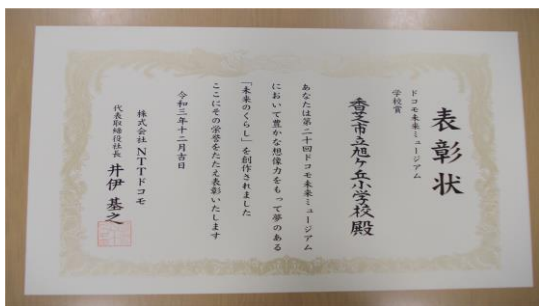 表彰状
ドコモ未来ミュージアム
学校賞
香芝市立旭ケ丘小学校殿
あなたは第二十回ドコモ未来ミュージアム
において豊かな想像力をもって夢のある
「未来のくらし」を創作されました
ここにその栄誉をたたえ表彰いたします
令和三年十二月吉日
株式会社NTTドコモ
代表取締役社長 井伊基之